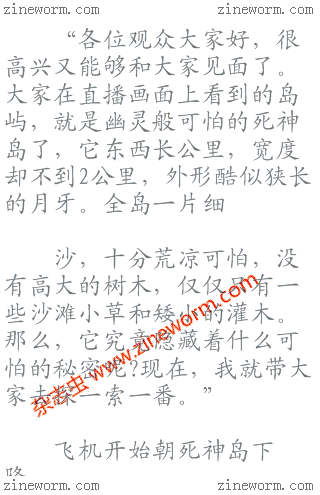 www.zineworm.com www.zineworm.com
“各位观众大家好，很
高兴又能够和大家见面了。
大家在直播画面上看到的岛
屿，就是幽灵般可怕的死神
岛了，它东西长公里，宽度
却不到2公里，外形酷似狭长
的月牙。全岛一片细
沙，十分荒凉可怕，没
有高大的树木，仅仅只有一
些沙滩小草和矮小的灌木。
那么，它究竟隐藏着什么可
怕的秘密呢?现在，我就带大
家去探一索一番。”
飞机开始朝死神岛下
杂志虫 www.zineworm.com
www.zineworm.com www.zineworm.com